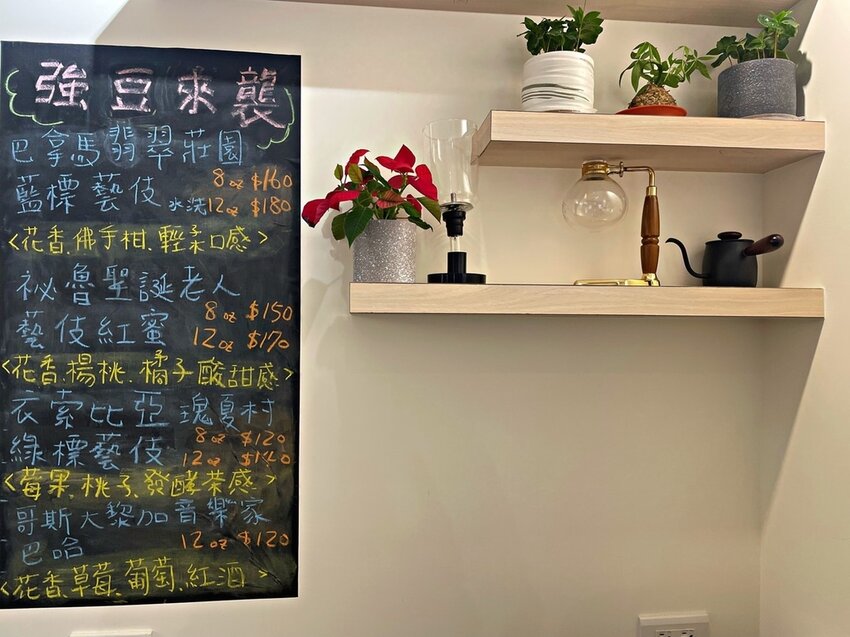 強豆來襲
巴拿馬翡翠莊園
藍標藝伎 水洗 8oz $160
12oz $180
<花香.佛手柑.輕柔口感>
祕魯聖誕老人
藝伎紅蜜 8oz $150
12oz $170
<花香.楊桃.橘子酸甜感>
衣索比亞瑰夏村
綠標藝伎 8oz $120
12oz $140
<莓果.桃子.發酵茶感>
哥斯大黎加音樂家
巴哈 12oz $120
<花香.草莓.葡萄.紅酒>